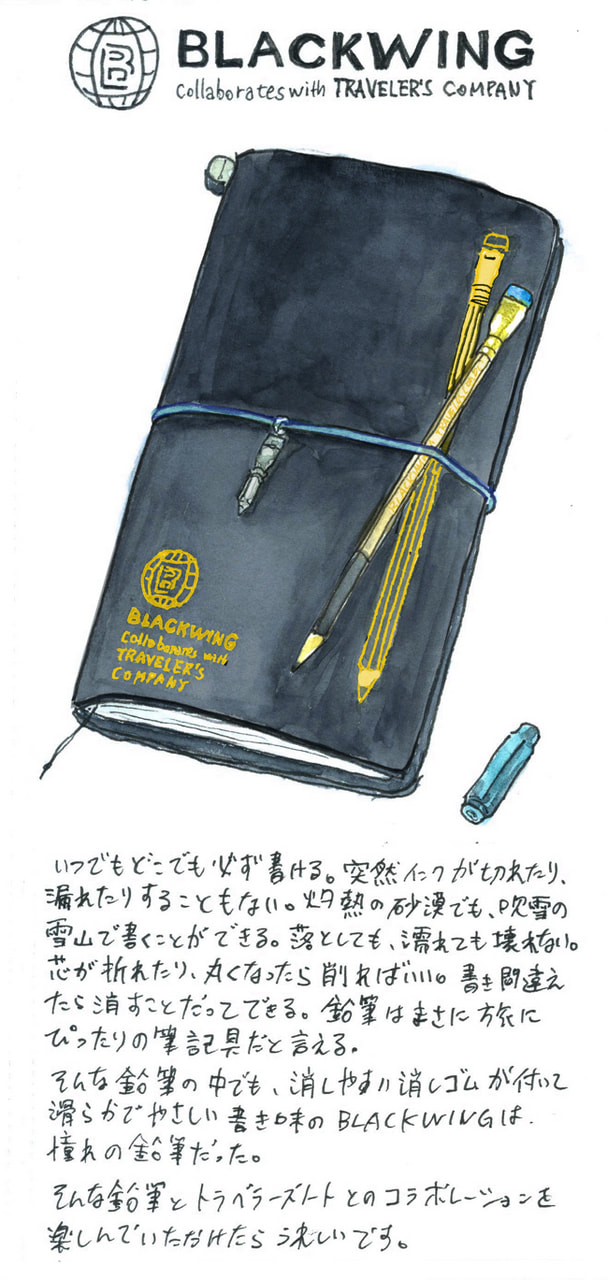 BLACKWING
Collaborates with TRAVELER'S COMPANY
BLACKWING
Collaborates with
TRAVELER'S
COMPANY
いつでもどこでも必ず書ける。突然インクが切れたり、
漏れたりすることもない。灼熱の砂漠でも、吹雪の
雪山で書くことができる。落としても、濡れても壊れない。
芯が折れたり、丸くなったら削ればいい。書き間違え
たら消すことだってできる。鉛筆はまさに旅に
ぴったりの筆記具だと言える。
そんな鉛筆の中でも、消しやすい消しゴムが付いて
滑らかでやさしい書き味のBLACKWINGは、
憧れの鉛筆だった。
そんな鉛筆とトラベラーズノートとのコラボレーションを
楽しんでいただけたらうれしいです。